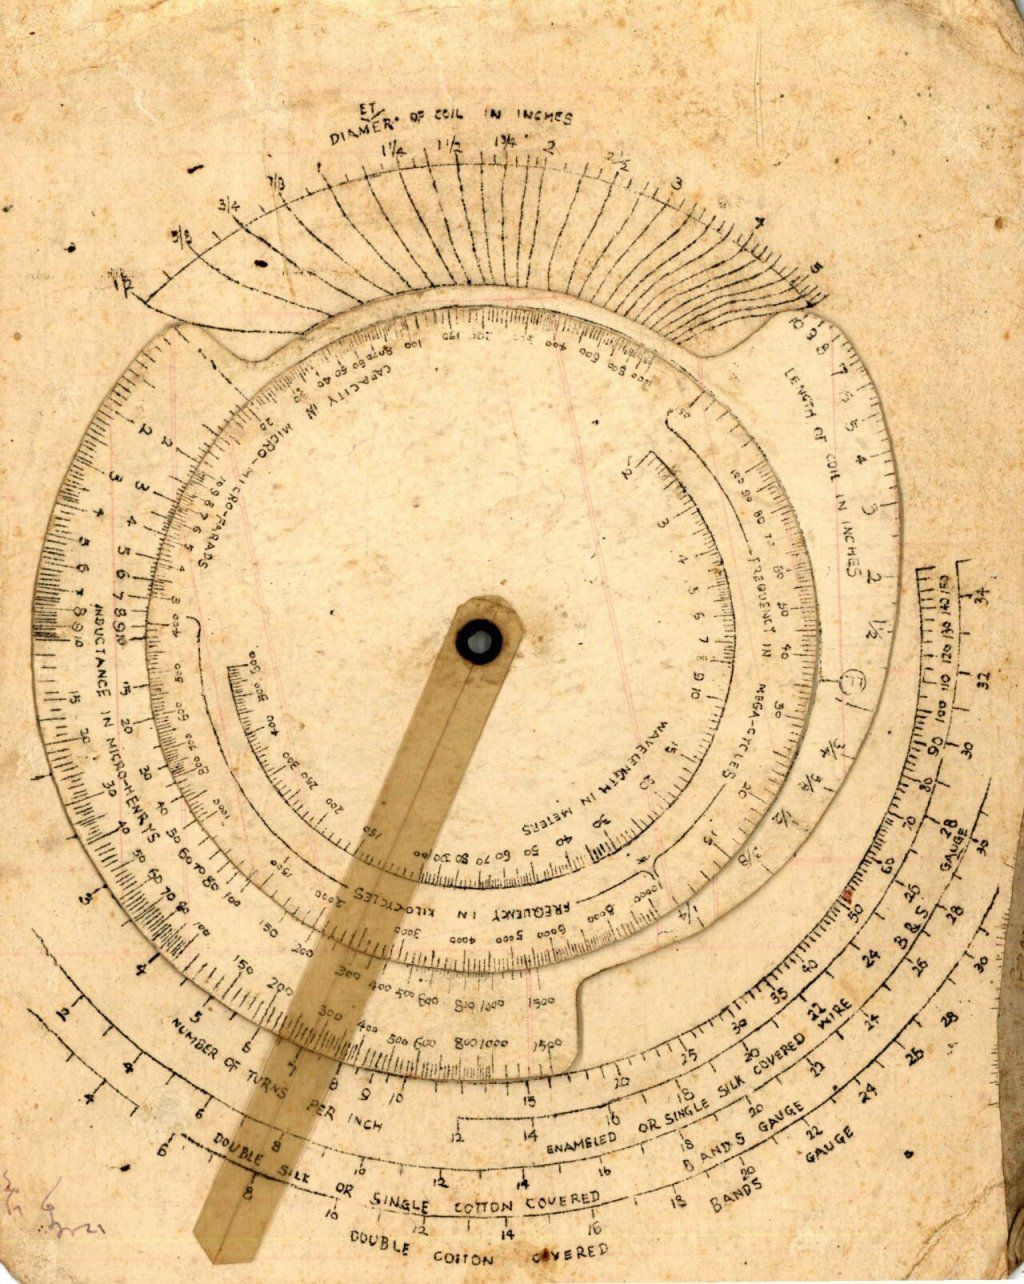 ET
DIAMER OF COIL IN INCHES
1/2 5/8 3/4 7/8 1 1/4 1 1/2 1 3/4 2 2 1/2 3 4 5
10 9 8 7 6 5 4 3 2 1 1/2 1 3/4 5/8 1/2 3/8 1/4
LENGTH OF COIL IN INCHES
20 30 40 50 60 70 80 100 150 200 300 400 600 800
10 9 8 7 6 5 4 3
CAPACITY IN MICRO-MICRO-FARADS
150 100 90 80 70 60 50 40 30 20 15
FREQUENCY IN MEGA-CYCLES
2 3 4 5 6 7 8 9 10 15 20 30 40 50 60 70 80 90 100 150 200 250 300 400 500 600
WAVELENGTH IN METERS
400 500 600 700 800 1000 1500 2000 3000 4000 5000 6000 8000 10000
FREQUENCY IN KILO-CYCLES
2 3 4 5 6 7 8 9 10 15 20 30 40 50 60 70 80 100 150 200 300 400 500 600 800 1000 1500
2 3 4 5 6 7 8 9 10 15 20 30 40 50 60 70 80 100 150 200 300 400 500 600 800 1000 1500
INDUCTANCE IN MICRO-HENRYS
3 4 5 6 7 8 9 10 15 20 25 30 35 40 50 60 70 80 90 100 110 120 130 140 150
NUMBER OF TURNS PER INCH
12 14 16 18 20 22 24 26 28 30 32 34
ENAMBLED OR SINGLE SILK COVERED WIRE
B & S GAUGE
2 4 6 8 10 12 14 16 18 20 22 24 26 28 30
DOUBLE SILK OR SINGLE COTTON COVERED
B AND S GAUGE
4 6 8 10 12 14 16 18 20 22 24 26 28 30
DOUBLE COTTON COVERED
B AND S GAUGE